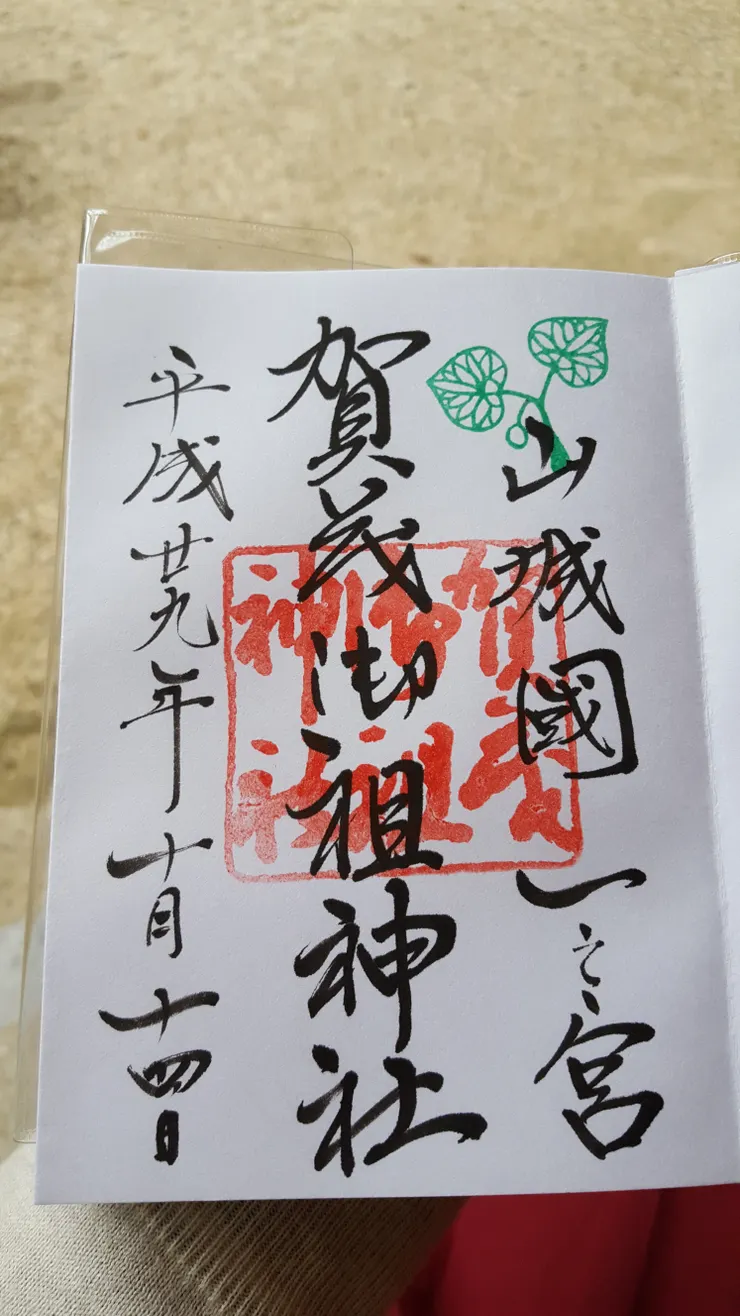 山城國一之宮
賀茂御祖神社
平成廿九年十月十四日
賀茂
御祖
神社